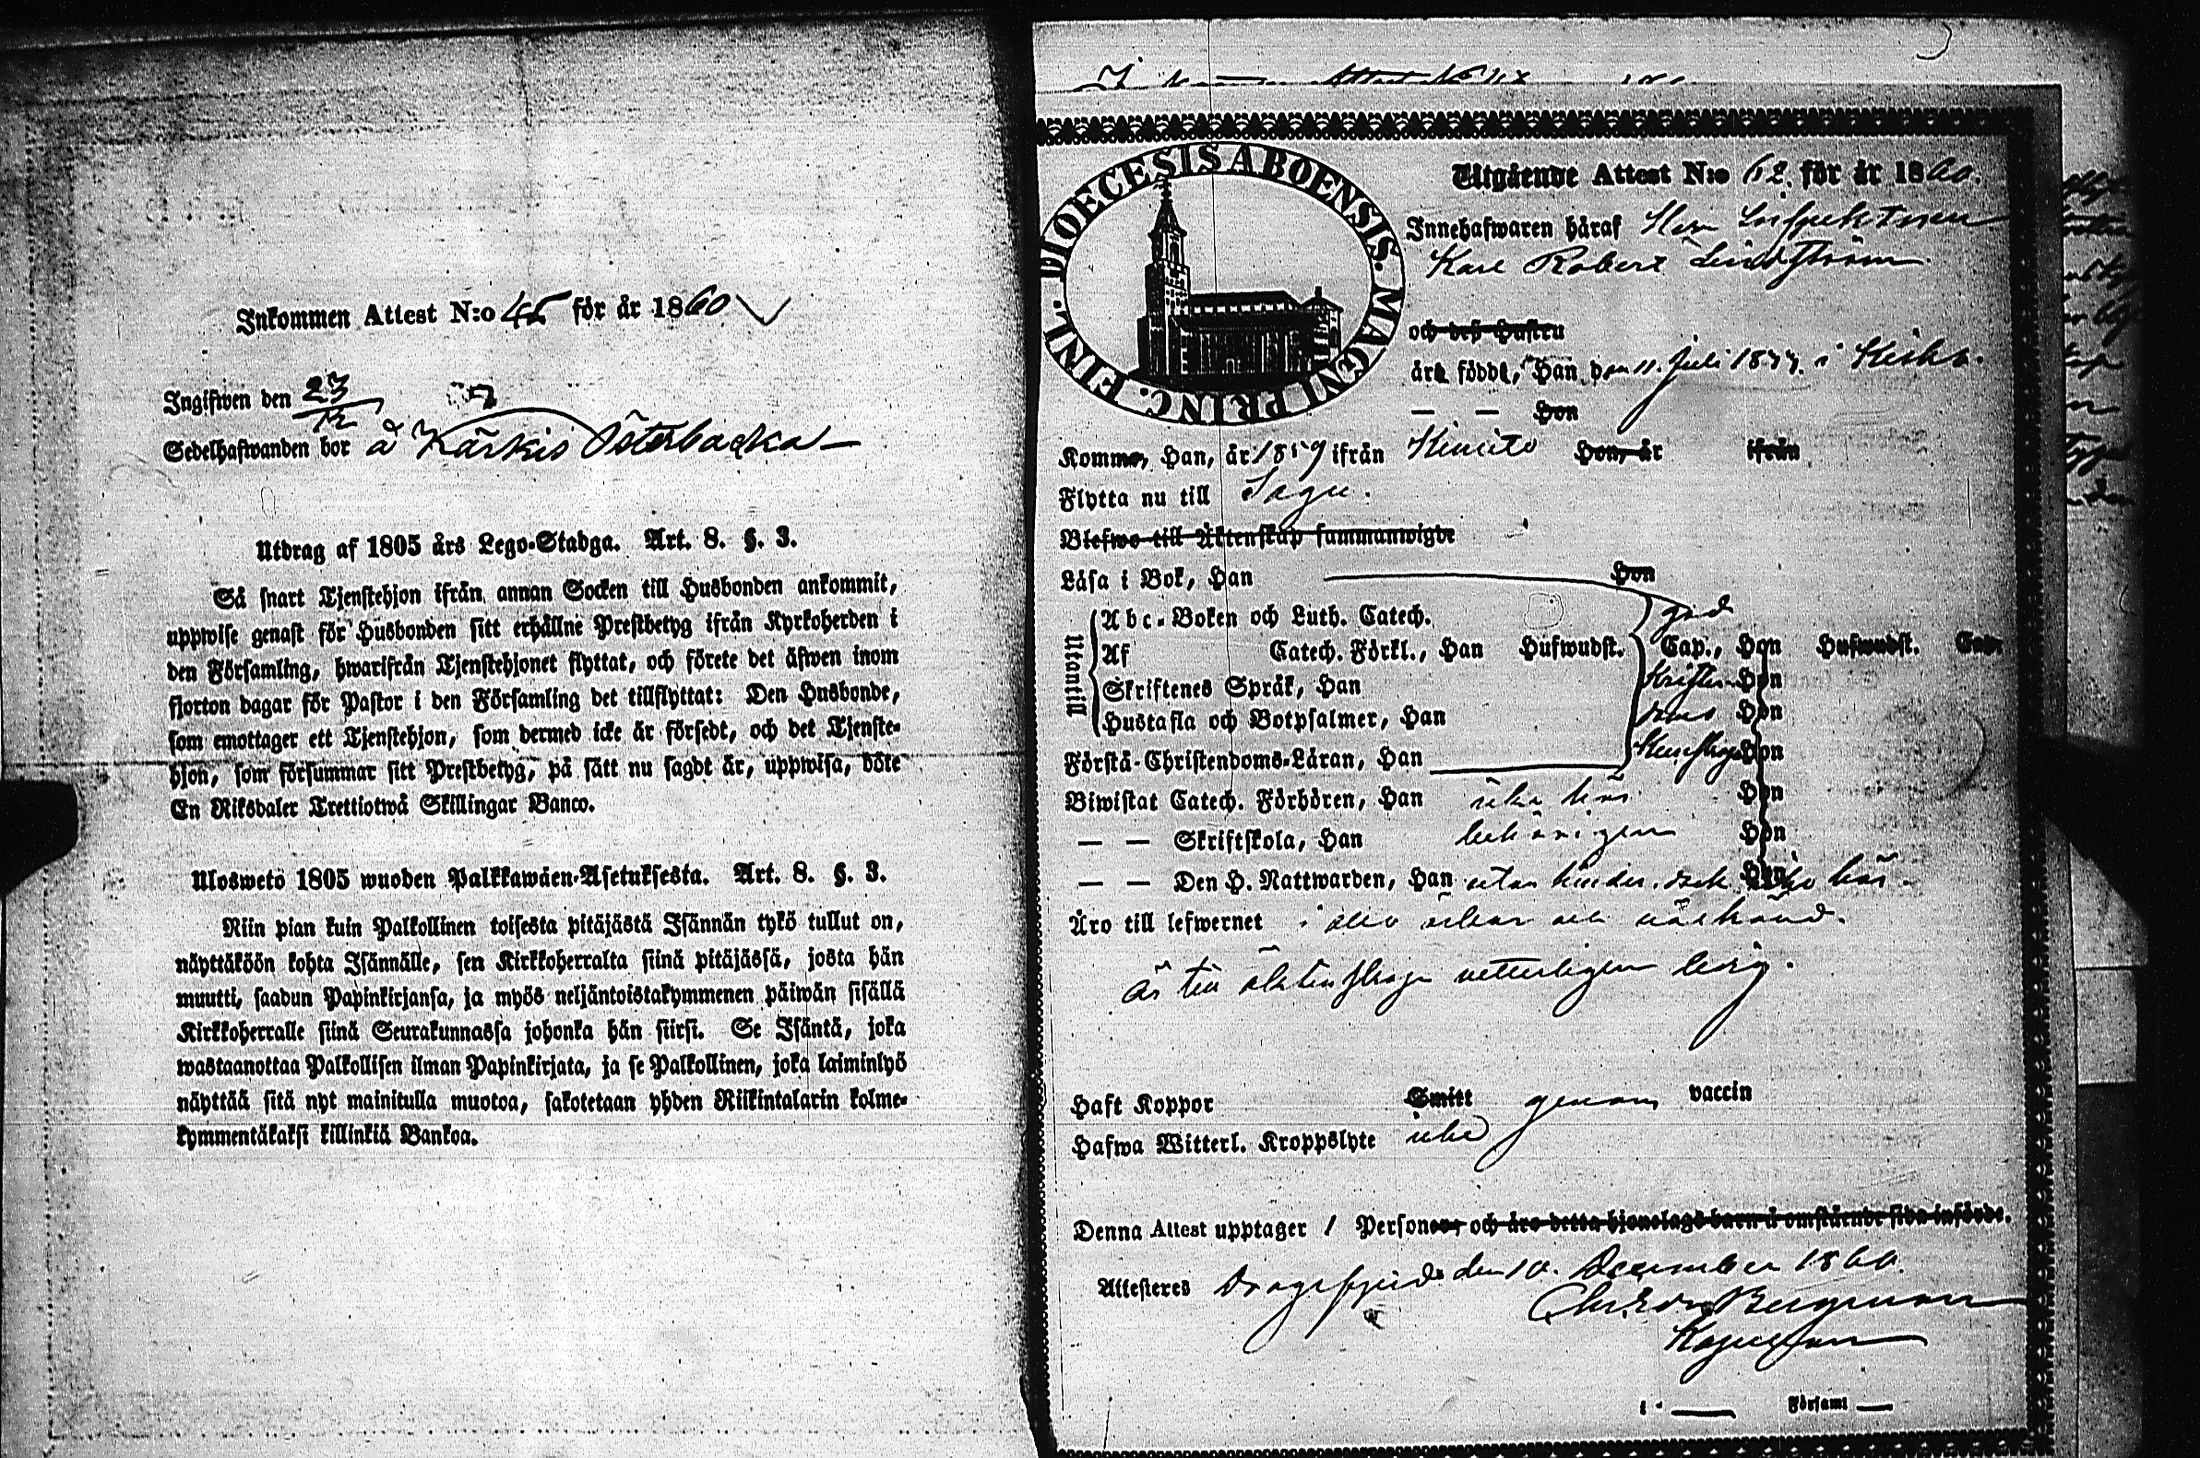 Inkommen Attest N:o 45 för år 1860
Ingifwen den 23/12
Sedelhafwanden bor å Kärkis Österbacka
Utdrag af 1805 års Lego-Stadga. Art. 8. §. 3.
Så snart Tjenstehjon ifrån annan Socken till Husbonden ankommit,
uppwise genast för Husbonden sitt erhållne Prestbetyg ifrån Kyrkoherden i
den Församling, hwarifrån Tjenstehjonet flyttat, och förete det äfwen inom
fjorton dagar för Pastor i den Församling det tillflyttat: Den Husbonde,
som emottager ett Tjenstehjon, som dermed icke är försedt, och det Tjenste-
hjon, som försummar sitt Prestbetyg, på sätt nu sagdt är, uppwisa, böte
En Riksdaler Trettiotwå Skillingar Banco.
Uloswetö 1805 wuoden Palkkawäen-Asetuksesta. Art. 8. §. 3.
Niin pian kuin Palkollinen toisesta pitäjästä Isännän tykö tullut on,
näyttäköön kohta Isännälle, sen Kirkkoherralta siinä pitäjässä, josta hän
muutti, saadun Papinkirjansa, ja myös neljäntoistakymmenen päiwän sisällä
Kirkkoherralle siinä Seurakunnassa johonka hän siirsi. Se Isäntä, joka
wastaanottaa Palkollisen ilman Papinkirjata, ja se Palkollinen, joka laiminlyö
näyttää sitä nyt mainitulla muotoa, sakotetaan yhden Riikintalarin kolme-
kymmentäkaksi killinkiä Bankoa.
FINL. DIOECESIS ABOENSIS. MAGNI PRINC.
Utgående Attest N:o 62. för år 1860.
Innehafwaren häraf Herr Inspektoren
Karl Robert Lindström
och deß Hustru
äro född, Han den 11. Juli 18 i Kisko.
— — Hon
Komme, Han, år 1859 ifrån Kimito Hon, år ifrån
Flytta nu till Sagu.
Blefwo till Äktenskap sammanwigde
Läsa i Bok, Han Hon
Utantill
Abc-Boken och Luth. Catech. god
Af Catech. Förkl., Han Hufwudst. Cap., Hon Hufwudst. Cap.
Skriftenes Språk, Han Kristen- Hon
Hustafla och Botpsalmer, Han doms Hon
Förstå Christendoms-Läran, Han kunskap Hon
Biwistat Catech. Förhören, Han icke här Hon
— — Skriftskola, Han behörigen Hon
— — Den H. Nattwarden, Han utan hinder, dock icke här. Hon
Äro till lefwernet
är till äktenskap vetterligen ledig.
Haft Koppor Smitt genom vaccin
Hafwa Witterl. Kroppslyte icke
Denna Attest upptager 1 Personer, och äro detta hjonelags barn å omstående sida införde.
Attesteres Dragsfjerd den 10. December 1860.
Bergman
Kapellan
i — Församl —